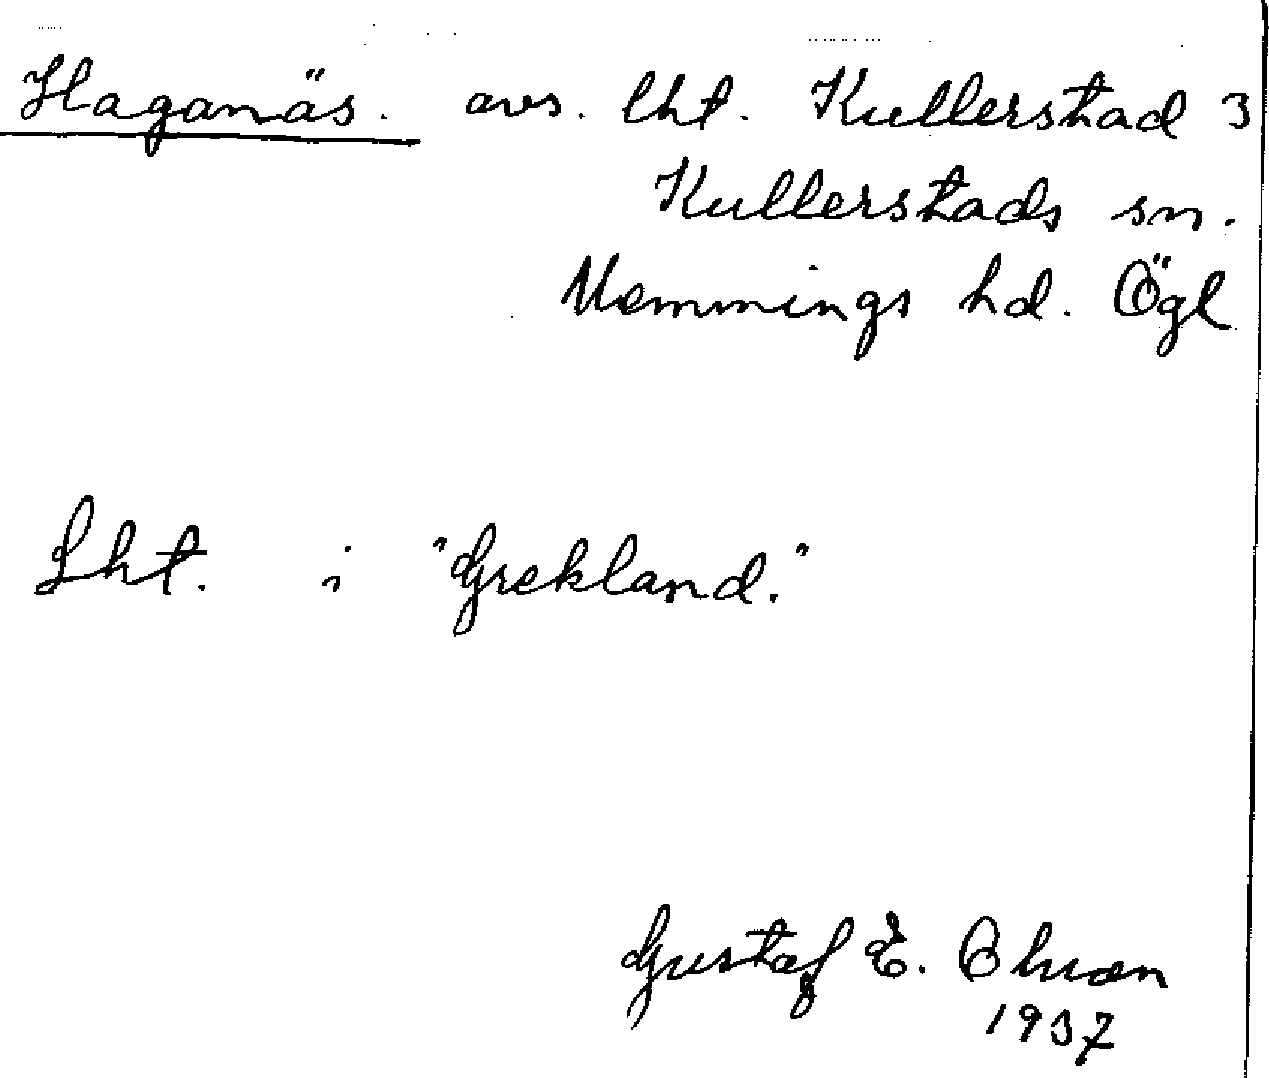 Haganäs. avs. lht. Kullerstad 3
Kullerstads sn.
Memmings hd. Ögl
Lht. i "Grekland."
Gustaf E.
1937